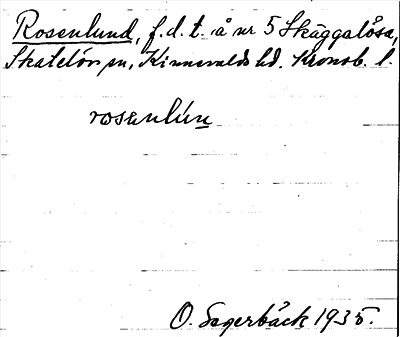 Rosenlund, f.d. t. å nr 5 Skäggalösa,
Skatelövs sn, Kinnevalds hd. Kronob. l.
rosenlún
O. Sagerbäck 1935.